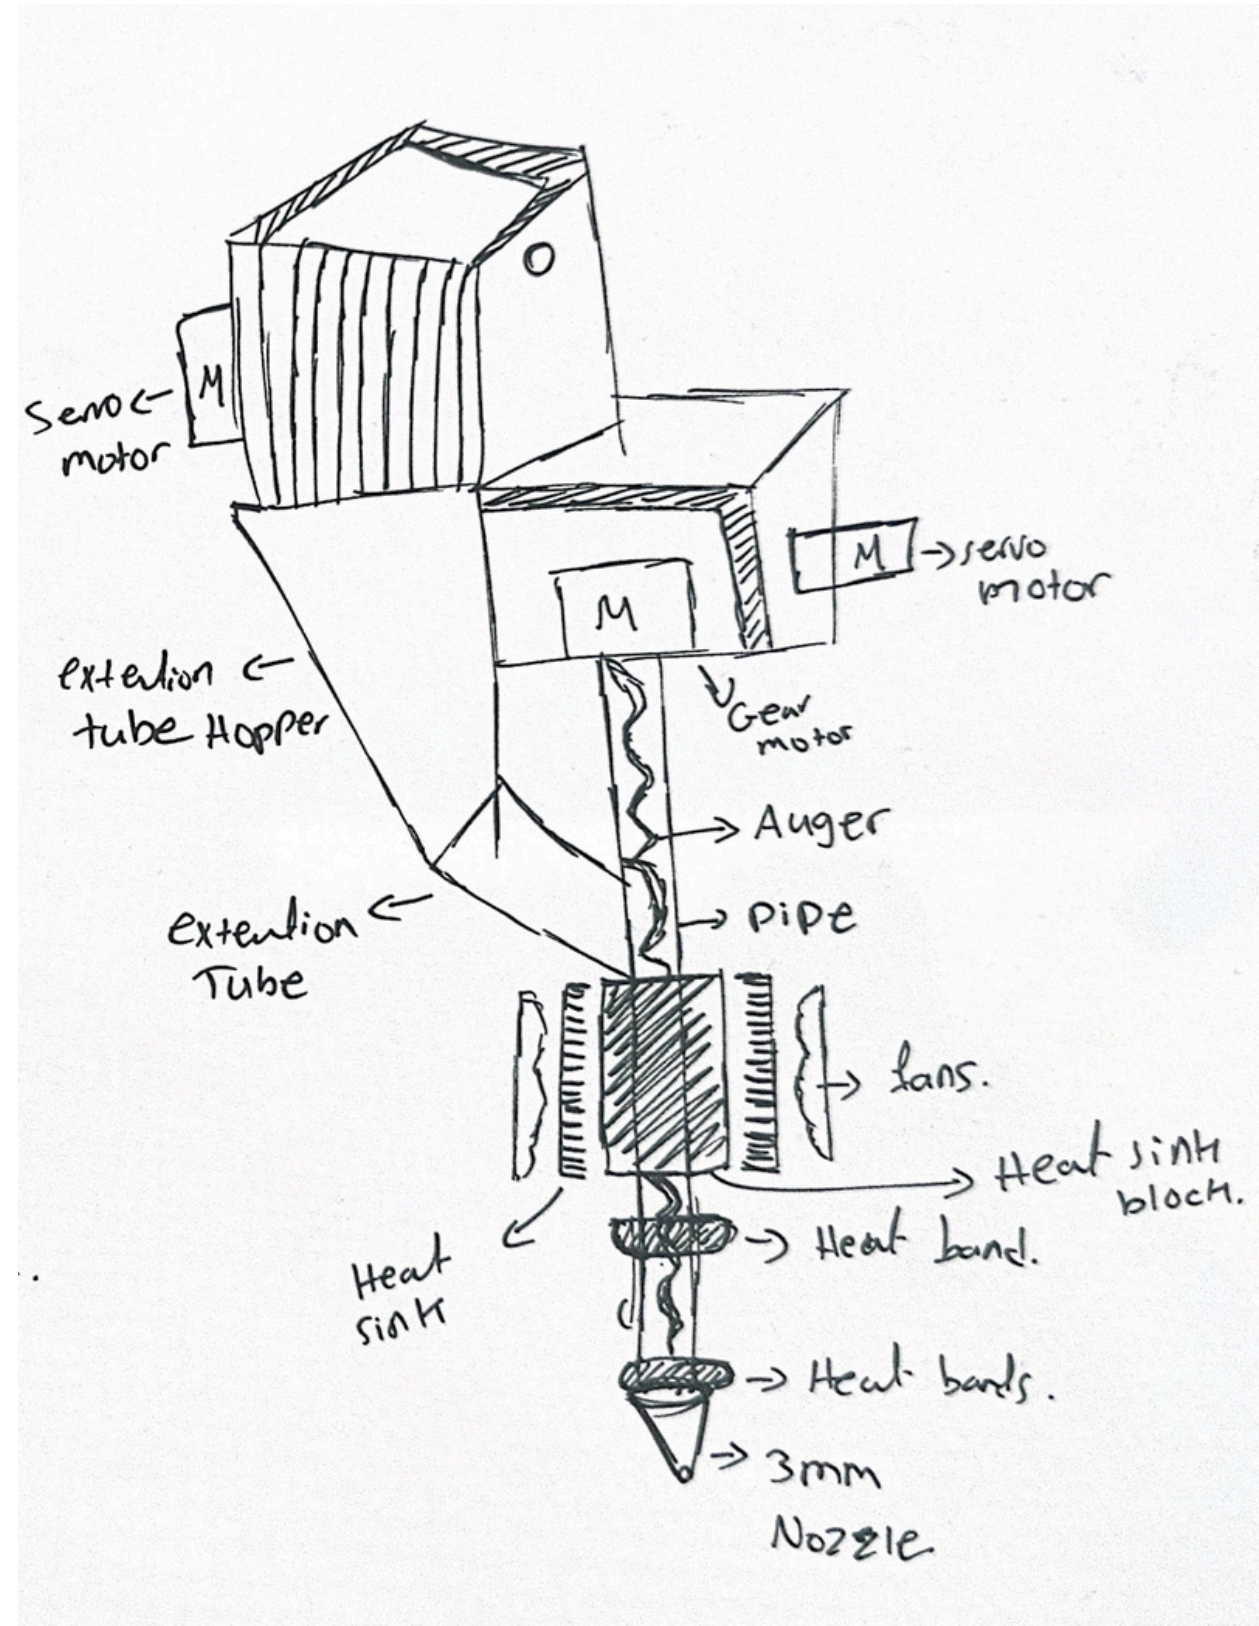 M
Servo
motor
M
servo
motor
M
extention
tube Hopper
Gear
motor
Auger
PiPe
extention
Tube
fans.
Heat sink
block.
Heat
sink
Heat band.
Heat bands.
3mm
Nozzle